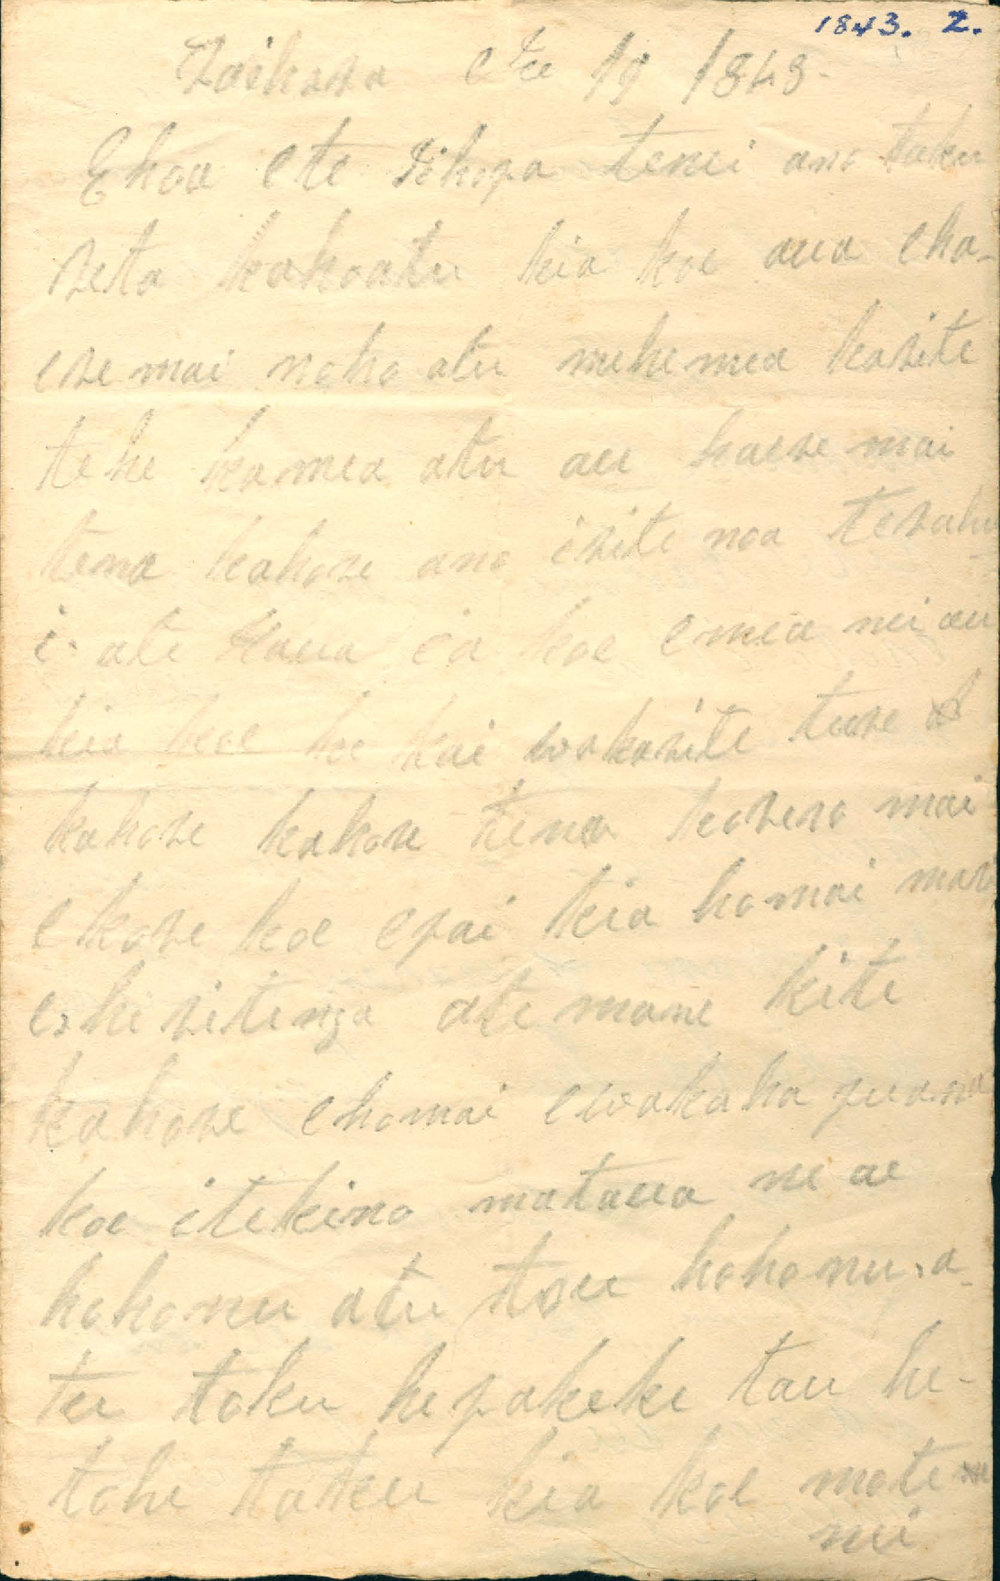 1843. 2.
1843
Ehoa ete Pihopa tenei ano taku
reta kahoatu kia koe aua eha-
ere mai noho atu mehemea karite
te he kamea atu au haere mai
tena kahore ano irite noa terahu
i. ate Haua ia koe emea nei au
kia koe he kai wakarite ture
kahore kahore tena korero mai
ekore koe epai kia homai
ritenga ate mane kite
kahore ehomai ewakaha
koe itekino mataua ne ae
hohonu atu tou hohonu a-
tu toku he pakeke tau he-
tohe taku kia koe mate
nei